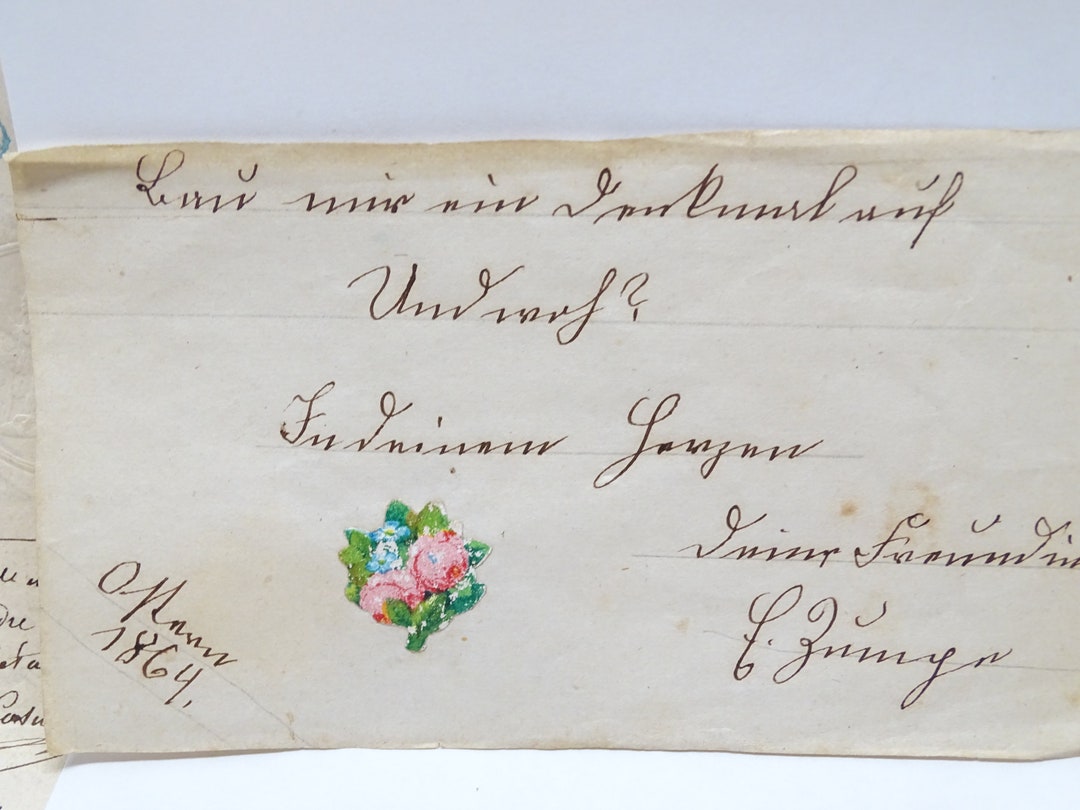 Bau mir ein Denkmal auf
Und woh?
In deinem Herzen
Deine Freundin
E. Zumpe
Ostern
1864.